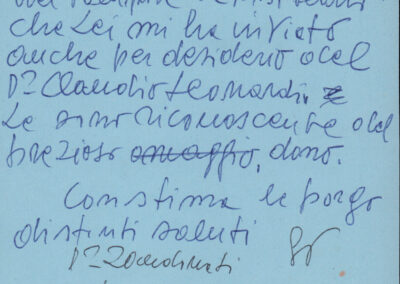 che Lei mi ha inviato
anche per desiderio del
Dr Claudio Leonardi.
Le sono riconoscente del
prezioso omaggio, dono.
Con stima le porgo
distinti saluti
Dr